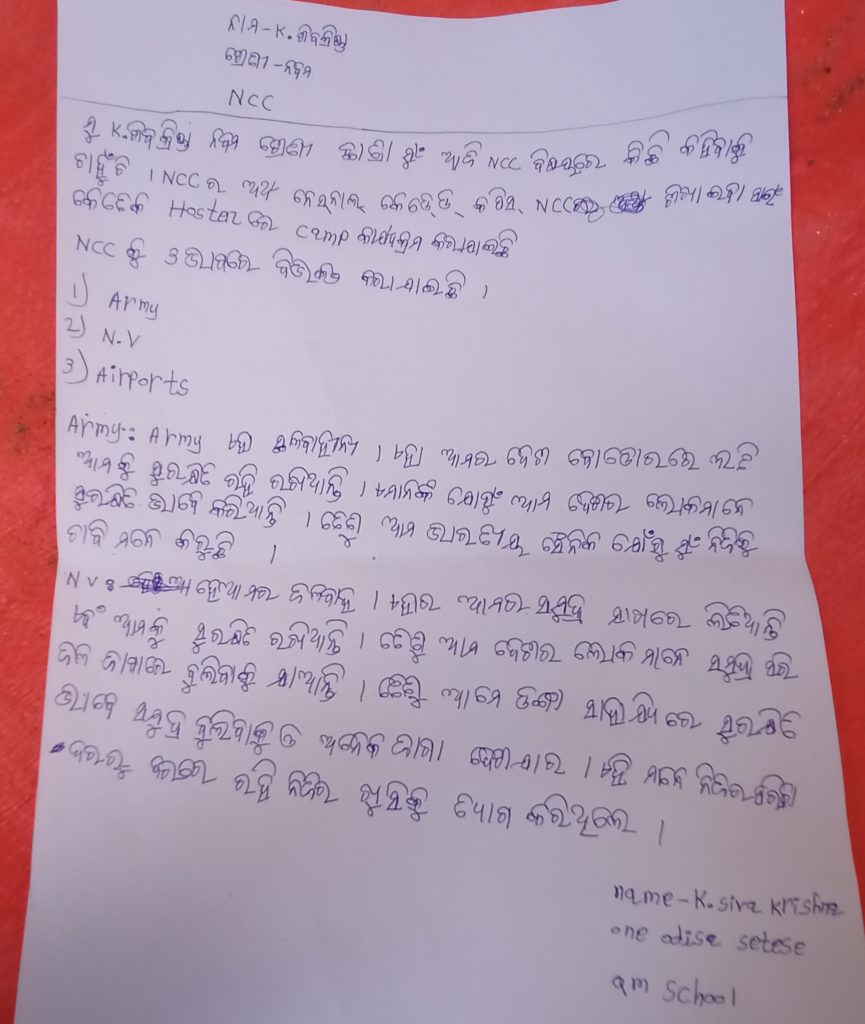 ନାମ-K.ଶିବକ୍ରିଷ୍ନା
ଶ୍ରେଣୀ-ନବମ
NCC
ମୁଁ K.ଶିବକ୍ରିଷ୍ନା ନବମ ଶ୍ରେଣୀ ଛାତ୍ରୀ ମୁଁ ଆଜି NCC ବିଷୟରେ କିଛି କହିବାକୁ
ଚାହୁଁଚି । NCC ର ଅର୍ଥ ନେସ୍ନାଲ୍ କେଡେଡ୍ କପସ୍ NCC ଶିଖାଇବା ପାଇଁ
କେତେକ Hostar ରେ camp କାର୍ଯକ୍ରମ କରାଯାଇଛି
NCC କୁ ୩ ଭାଗରେ ବିଭକ୍ତ କରାଯାଇଛି ।
1) Army
2) N.V
3) Airports
Army: Army ଏହା ସ୍ଥଳବାହୀନୀ । ଏହା ଆମର ଦେଶ ବୋଡୋରରେ ଲଢି
ଆମକୁ ସୁରକ୍ଷିତ ରହି ରଖିଥାନ୍ତି । ଏମାନଙ୍କ ଯୋଗୁଁ ଆମ ଦେଶର ଲୋକମାନେ
ସୁରକ୍ଷିତ ଭାବେ କରିଥାନ୍ତି । ତେଣୁ ଆମ ଭାରତୀୟ ସୈନିକ ଯୋଗୁଁ ମୁଁ ନିଜକୁ
ଗର୍ବି ମନେ କରୁଛି ।
NV: ହେଆମର ଜଳବାହି । ଏହାର ଆମର ସମୁଦ୍ର ମାଗରେ ଲଢିଥାନ୍ତି
ଏବଂ ଆମକୁ ସୁରକ୍ଷିତ ରଖିଥାନ୍ତି । ତେଣୁ ଆମ ଦେଶର ଲୋକ ମାନେ ସମୁଦ୍ର ପରି
ଜଳ ଜାଗାରେ ବୁଲିବାକୁ ଯାଆନ୍ତି । ତେଣୁ ଆମେ ତାଙ୍କ ସାହାଯ୍ୟ ରେ ସୁରକ୍ଷିତ
ଭାବେ ସମୁଦ୍ର ବୁଲିବାକୁ ଓ ଅନେକ ଜାଗା ଦେଖାଯାଏ । ଏହି ମାନେ ନିଜର
ଘରରୁ ଦୂରରେ ରହି ନିଜର ଖୁସିକୁ ତ୍ୟାଗ କରିଥିଲେ ।
name-K.siva Krishna
one odise setese
am School